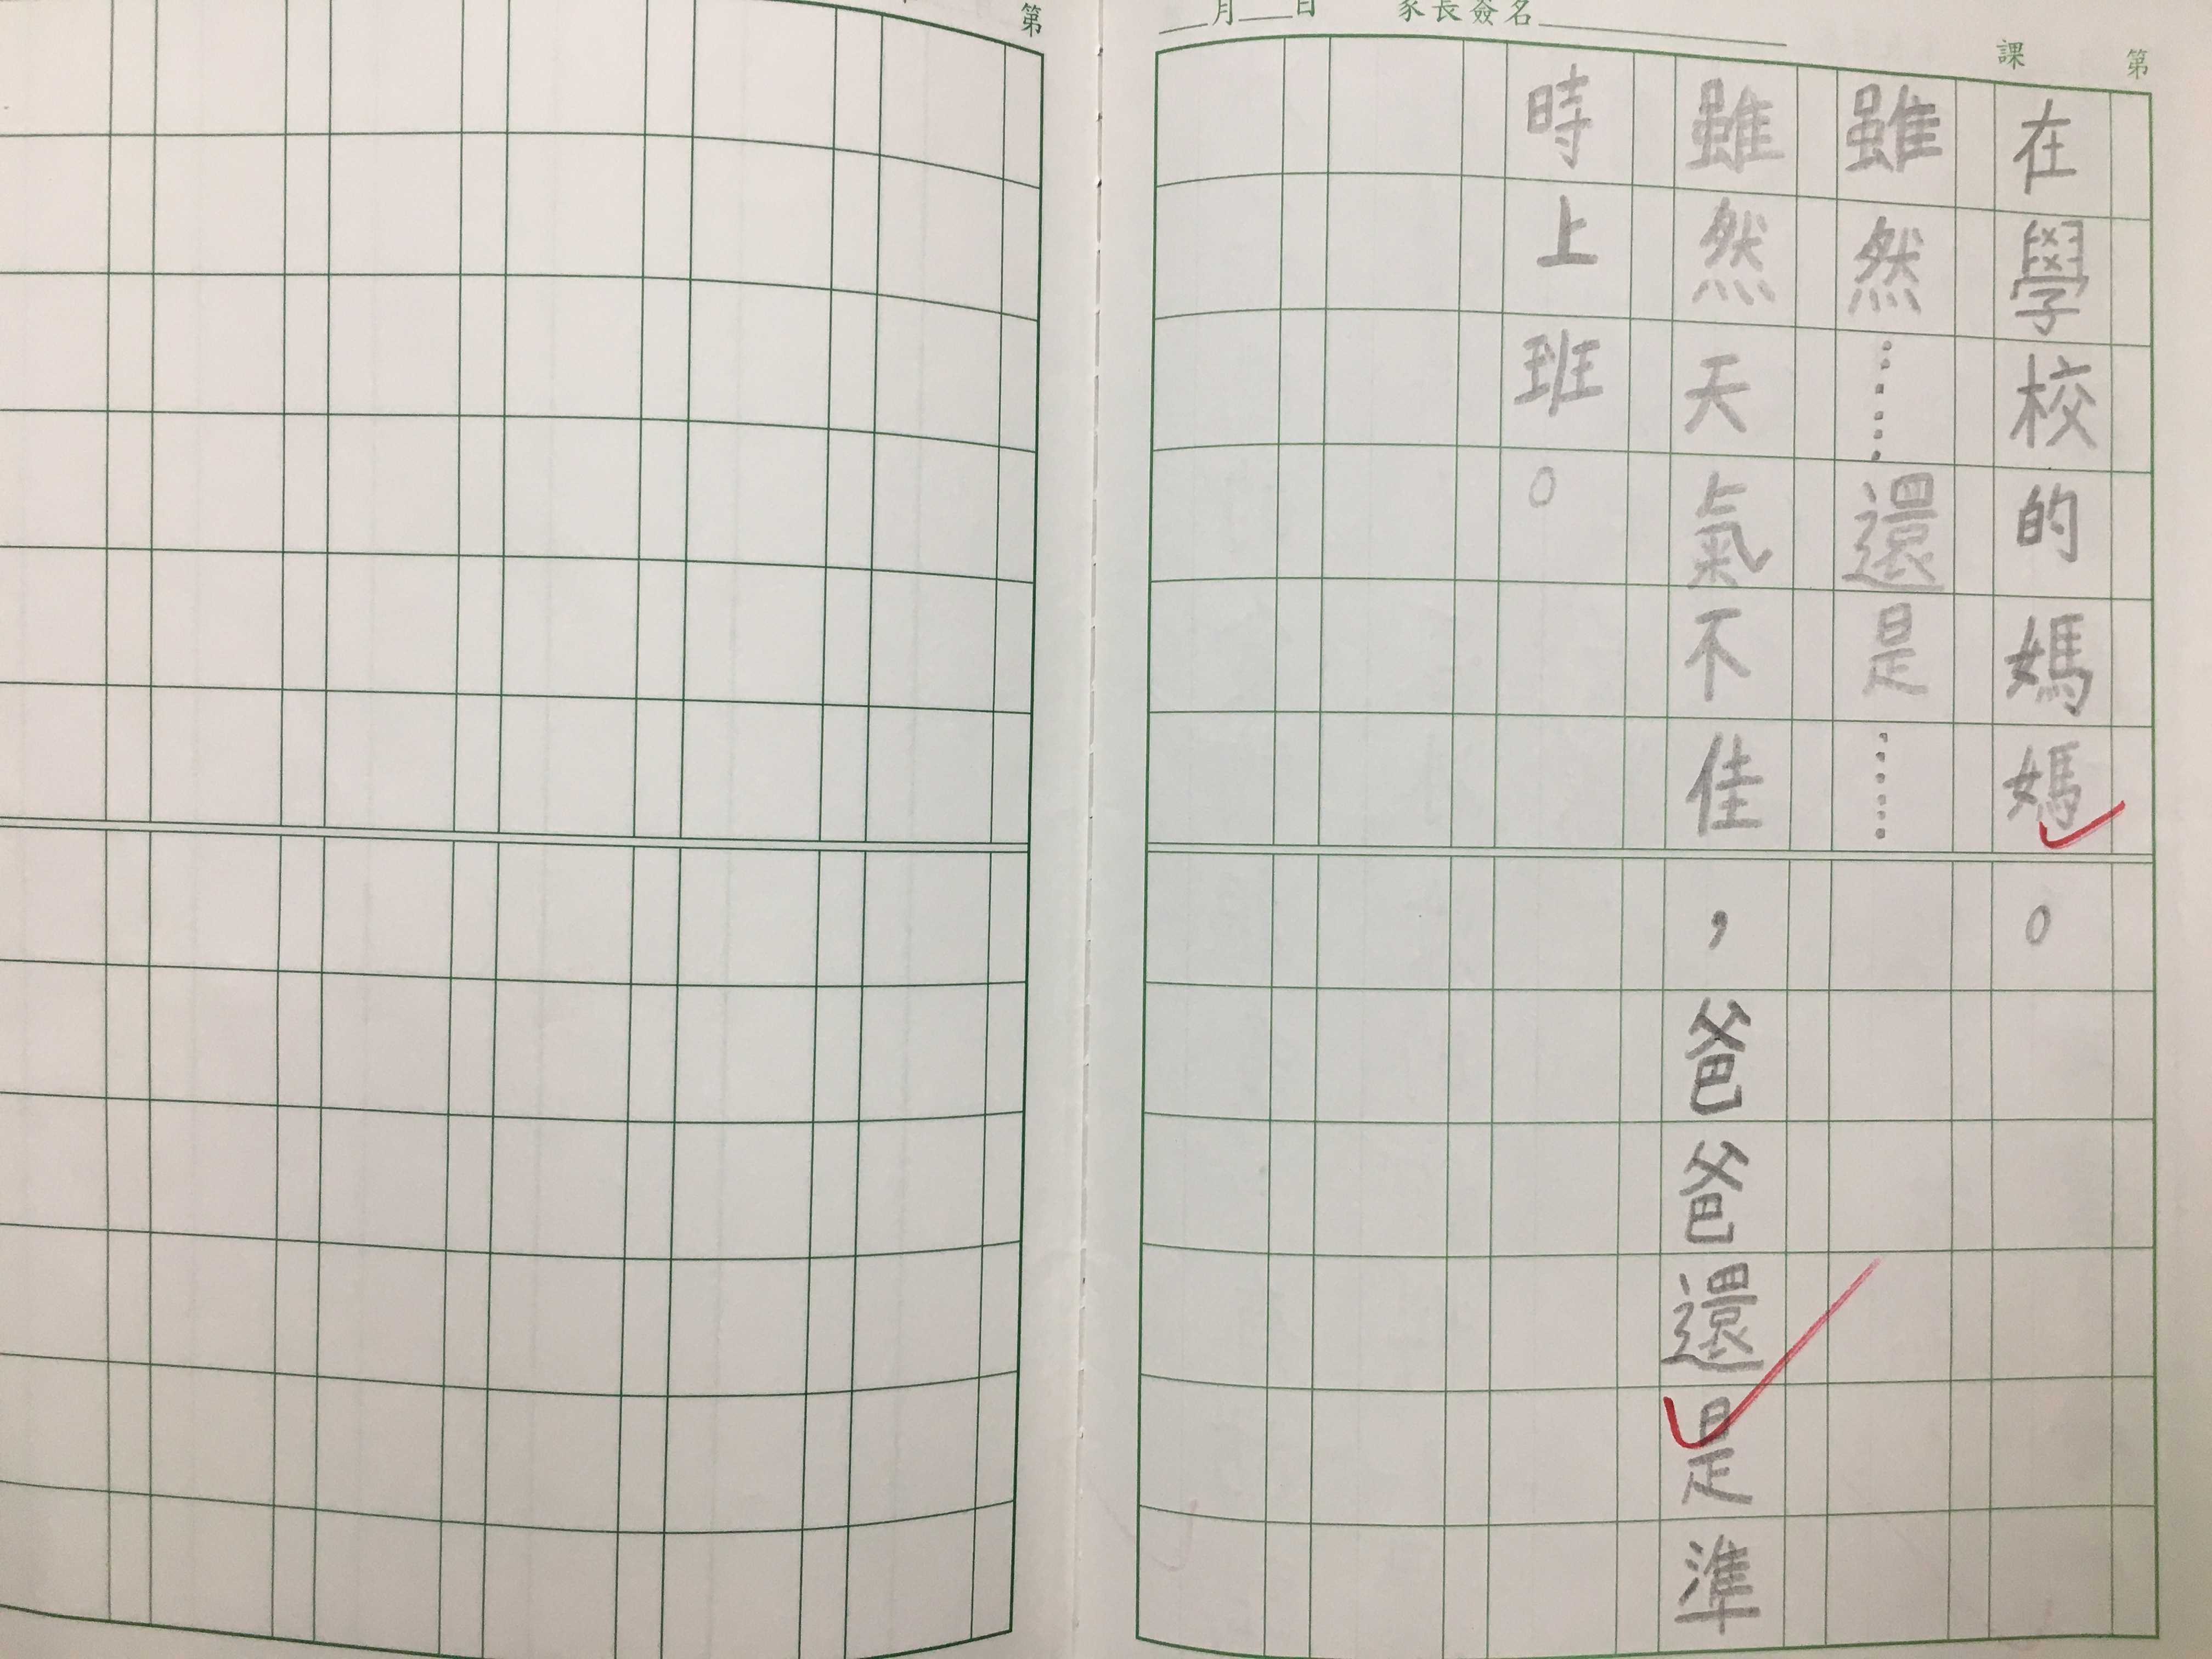 第
月 日 家長簽名
第 課
在學校的媽媽。
雖然……還是……
雖然天氣不佳，爸爸還是準
時上班。